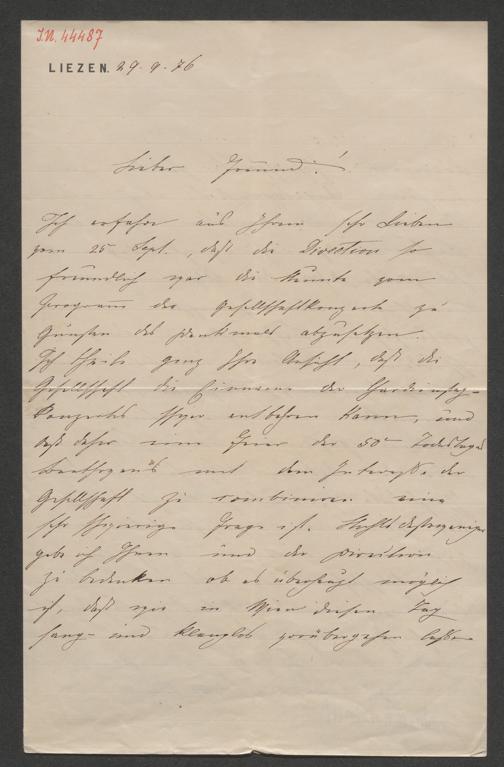 I.N. 44487
LIEZEN. 29. 9. 76
Lieber Freund!
Ich erfahre aus Ihrem sehr Lieben
vom 25 Sept., daß die Direction so
freundlich war die
Programm der Gesellschaftskonzerte zu
Gunsten des Denkmals abzusetzen.
Ich theile ganz Ihre Ansicht, daß die
Gesellschaft die Einnahme des
Konzertes schwer entbehren kann, und
daß daher eine Feier des 50t Todestages
Beethovens mit dem Interesse der
Gesellschaft zu combiniren eine
sehr schwierige Frage ist. Nichts destoweniger
gebe ich Ihnen und der Direction
zu bedenken ob es überhaupt möglich
ist, daß wir in Wien diesen Tag
sang- und klanglos vorübergehen lassen